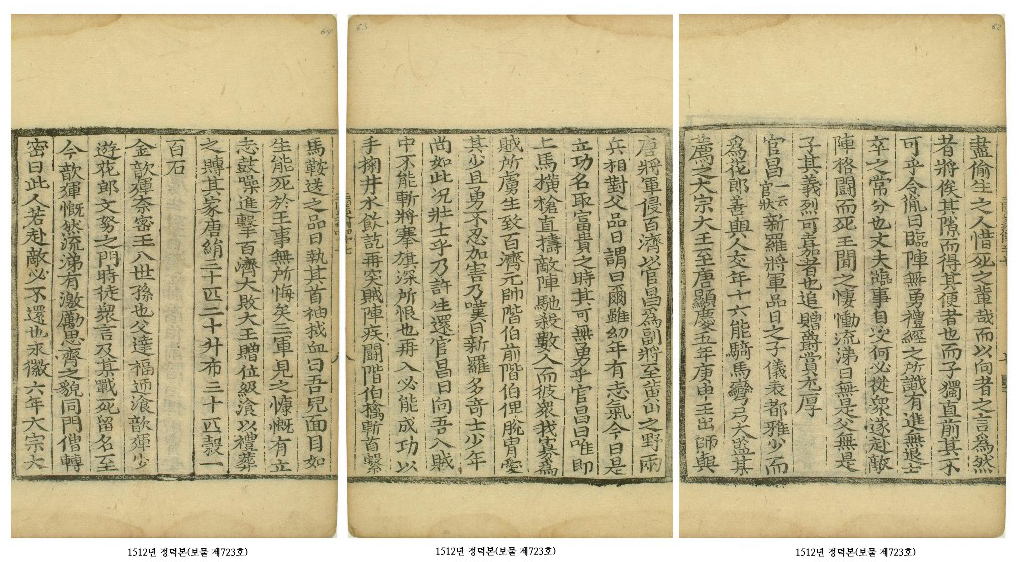 盡偷生之人惜死之輩哉而以向者之言爲然
者將俟其隙而得其便者也而子獨直前其不
可乎令胤曰臨陣無勇禮經之所識有進無退士
卒之常分也丈夫臨事自決何必從衆遂赴敵
陣格鬪而死王聞之悽慟流涕曰無是父無是
子其義烈可嘉者也追贈爵賞尤厚
官昌一云官狀新羅將軍品日之子儀表都雅少而
爲花郞善與人交年十六能騎馬彎弓大監某
薦之大宗大王至唐顯慶五年庚申王出師與
唐將軍侵百濟以官昌爲副將至黃山之野兩
兵相對父品日謂曰爾雖幼年有志氣今日是
立功名取富貴之時其可無勇乎官昌曰唯即
上馬橫槍直擣敵陣馳殺數人而彼衆我寡爲
賊所虜生致百濟元帥階伯前階伯俾脫冑愛
其少且勇不忍加害乃嘆曰新羅多奇士少年
尚如此況壯士乎乃許生還官昌曰向吾入賊
中不能斬將搴旗深所恨也再入必能成功以
手掬井水飮訖再突賊陣疾鬪階伯擒斬首繫
馬鞍送之品日執其首袖拭血曰吾兒面目如
生能死於王事無所悔矣三軍見之慷慨有立
志鼓噪進擊百濟大敗大王贈位級飡以禮葬
之賻其家唐絹三十匹二十升布三十匹穀一
百石
金歆運奈密王八世孫也父達福迊飡歆運少
遊花郞文努之門時徒衆言及某戰死留名至
今歆運慨然流涕有激勵思齊之貌同門僧轉
密曰此人若赴敵必不還也永徽六年大宗大
1512년 정덕본(보물 제723호)
1512년 정덕본(보물 제723호)
1512년 정덕본(보물 제723호)